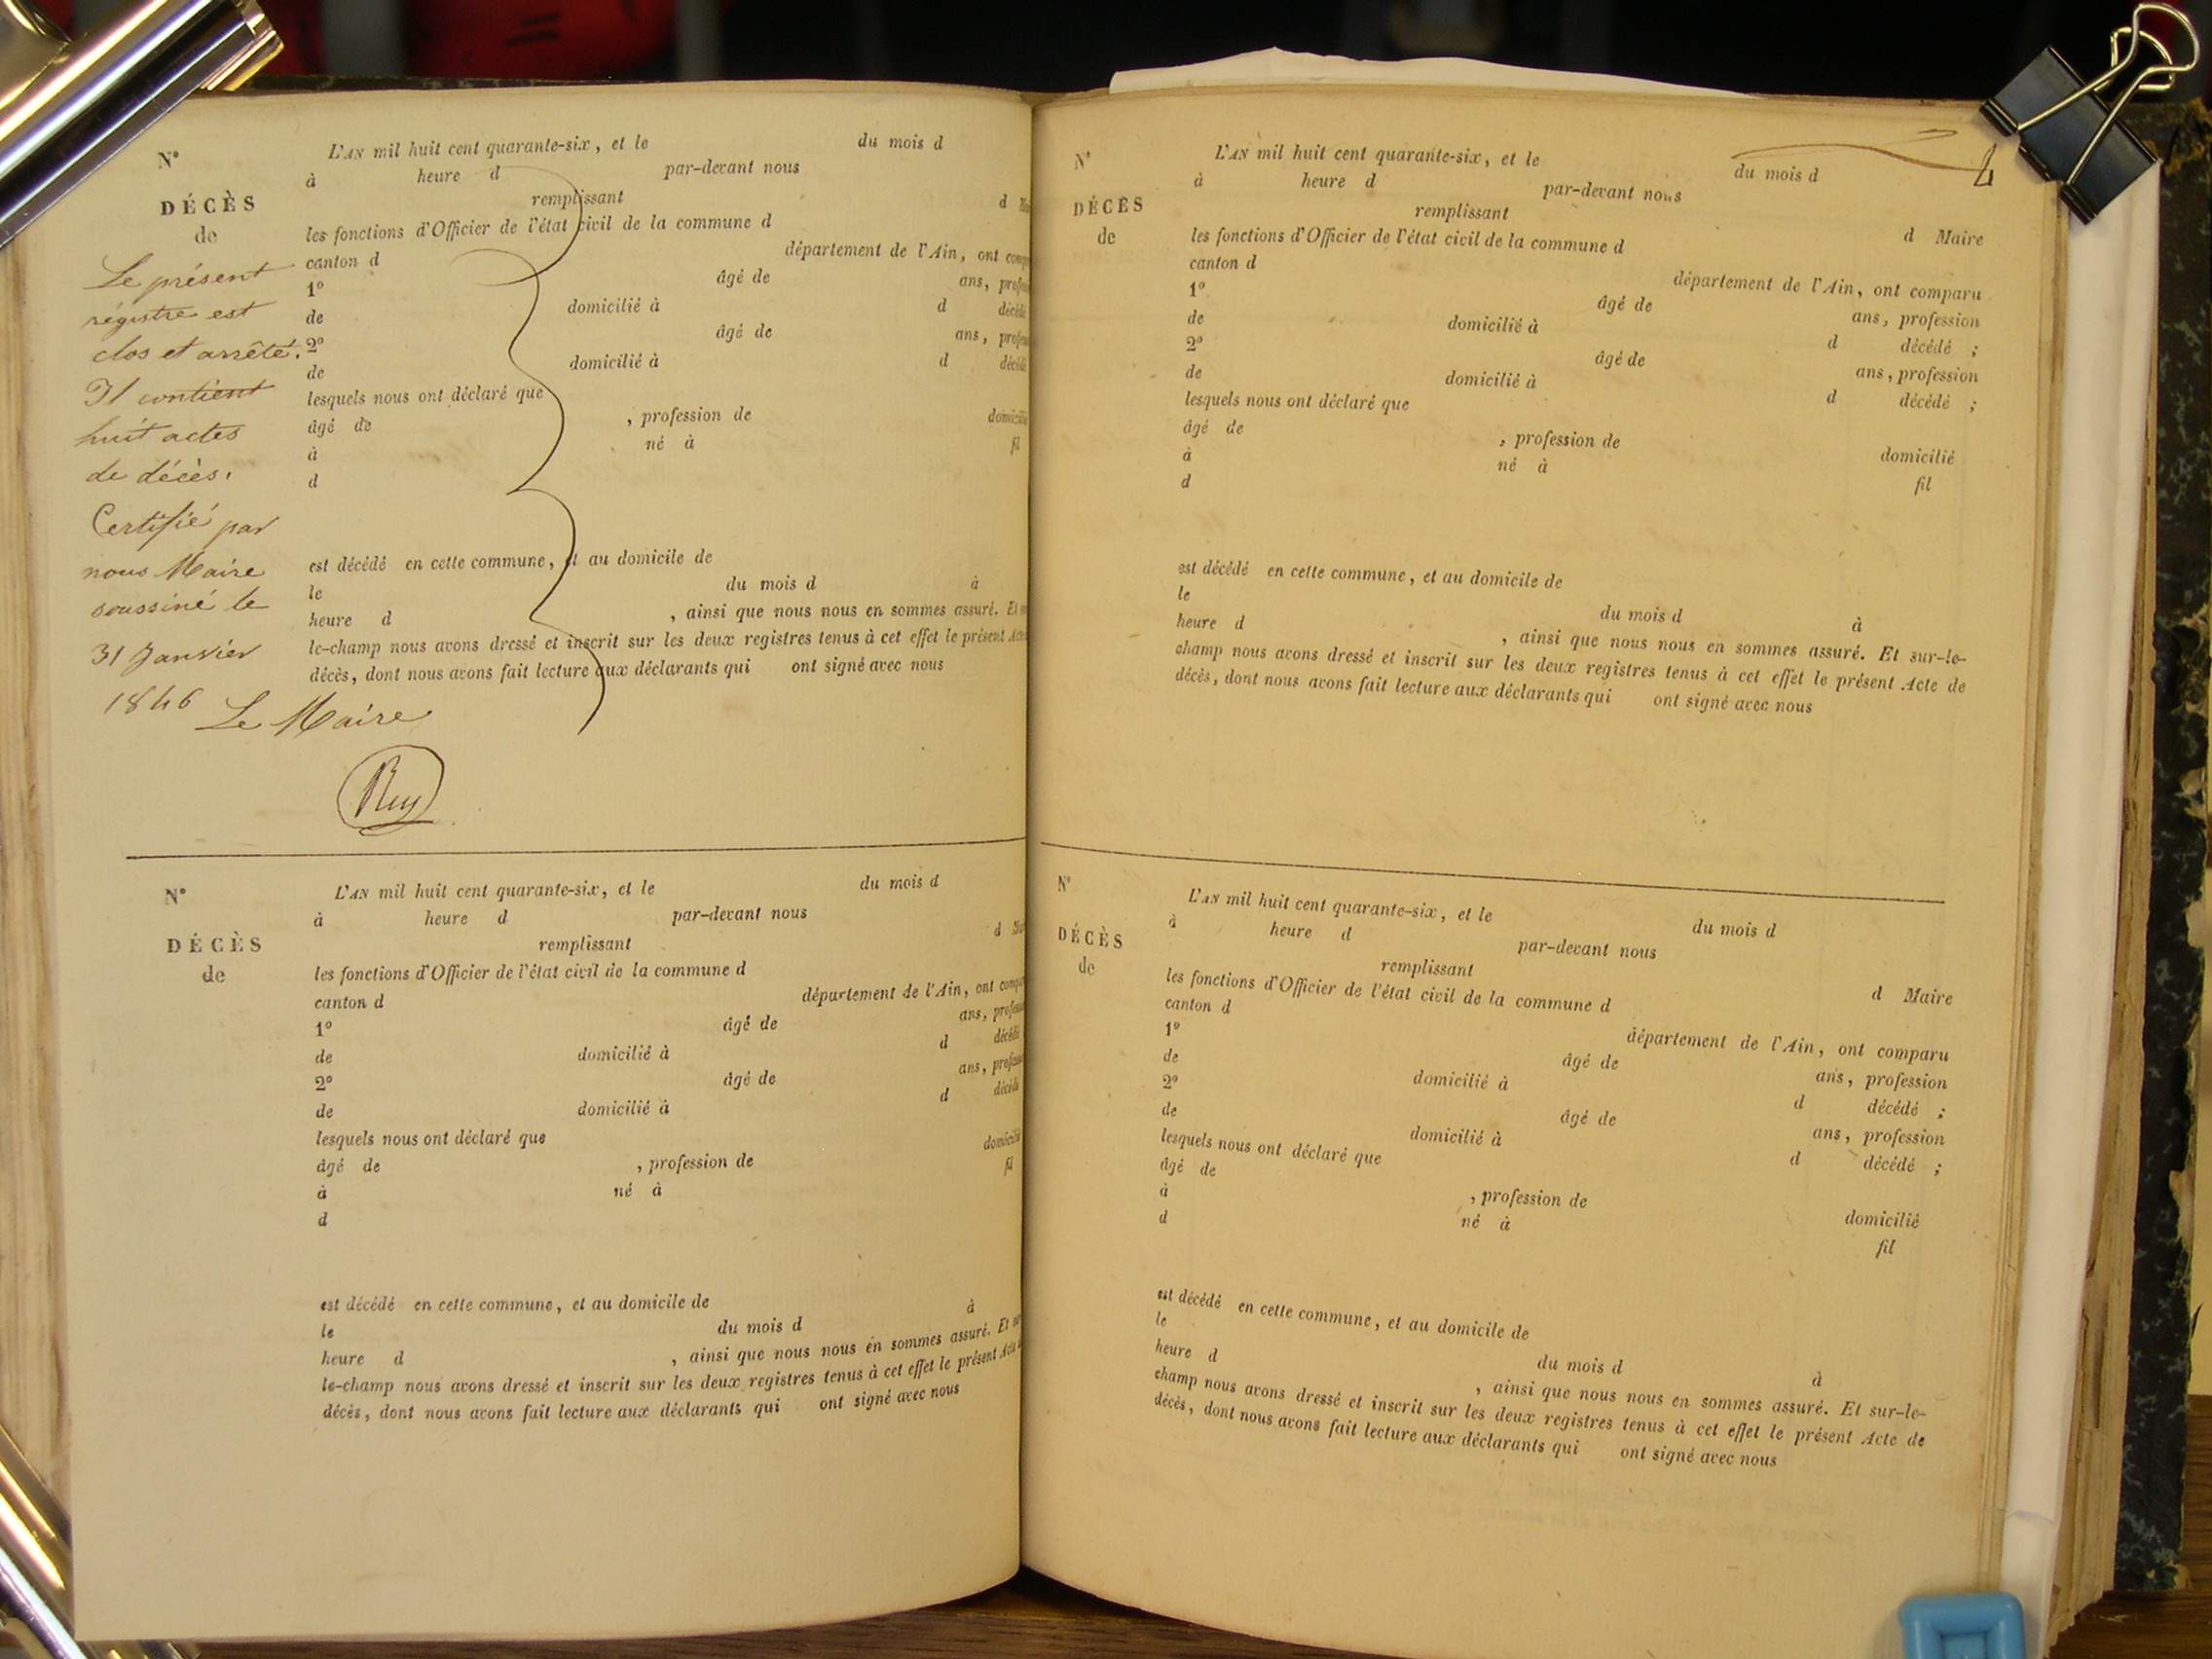 N° L'AN mil huit cent quarante-six, et le du mois d
à heure d par-devant nous
DÉCÈS remplissant d
de les fonctions d'Officier de l'état civil de la commune d
Le présent canton d département de l'Ain, ont
1° âgé de ans,
régistre est de domicilié à d
clos et arrêté. 2° âgé de ans,
de domicilié à d
Il contient lesquels nous ont déclaré que
huit actes âgé de , profession de
à né à
de décès. d
Certifié par
nous Maire est décédé en cette commune, et au domicile de
soussiné le le du mois d à
heure d , ainsi que nous nous en sommes assuré. Et
31 Janvier le-champ nous avons dressé et inscrit sur les deux registres tenus à cet effet le présent
décès, dont nous avons fait lecture aux déclarants qui ont signé avec nous
1846 Le Maire
Ruy
N° L'AN mil huit cent quarante-six, et le du mois d
à heure d par-devant nous
DÉCÈS remplissant d
de les fonctions d'Officier de l'état civil de la commune d
canton d département de l'Ain, ont
1° âgé de ans,
de domicilié à d
2° âgé de ans,
de domicilié à d
lesquels nous ont déclaré que
âgé de , profession de
à né à
d
est décédé en cette commune, et au domicile de
le du mois d à
heure d , ainsi que nous nous en sommes assuré. Et
le-champ nous avons dressé et inscrit sur les deux registres tenus à cet effet le présent
décès, dont nous avons fait lecture aux déclarants qui ont signé avec nous
4
N° L'AN mil huit cent quarante-six, et le du mois d
à heure d par-devant nous
DÉCÈS remplissant d Maire
de les fonctions d'Officier de l'état civil de la commune d
canton d département de l'Ain, ont comparu
1° âgé de ans, profession
de domicilié à d décédé ;
2° âgé de ans, profession
de domicilié à d décédé ;
lesquels nous ont déclaré que
âgé de , profession de domicilié
à né à fil
d
est décédé en cette commune, et au domicile de
le du mois d à
heure d , ainsi que nous nous en sommes assuré. Et sur-le-
champ nous avons dressé et inscrit sur les deux registres tenus à cet effet le présent Acte de
décès, dont nous avons fait lecture aux déclarants qui ont signé avec nous
N° L'AN mil huit cent quarante-six, et le du mois d
à heure d par-devant nous
DÉCÈS remplissant d Maire
de les fonctions d'Officier de l'état civil de la commune d
canton d département de l'Ain, ont comparu
1° âgé de ans, profession
de domicilié à d décédé ;
2° âgé de ans, profession
de domicilié à d décédé ;
lesquels nous ont déclaré que
âgé de , profession de domicilié
à né à fil
d
est décédé en cette commune, et au domicile de
le du mois d à
heure d , ainsi que nous nous en sommes assuré. Et sur-le-
champ nous avons dressé et inscrit sur les deux registres tenus à cet effet le présent Acte de
décès, dont nous avons fait lecture aux déclarants qui ont signé avec nous